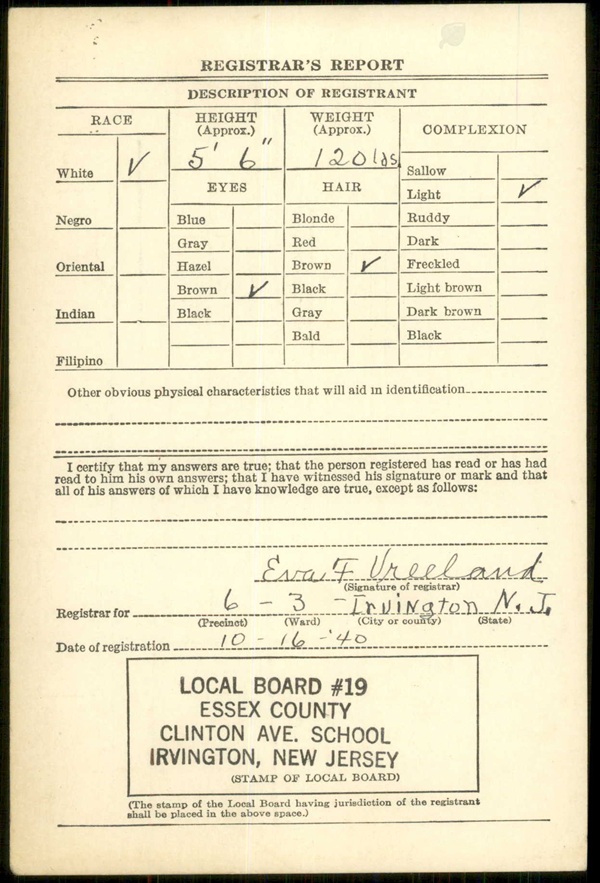 REGISTRAR'S REPORT
DESCRIPTION OF REGISTRANT
RACE
HEIGHT
(Approx.)
WEIGHT
(Approx.)
COMPLEXION
5' 6"
120 lbs.
White ✓
EYES
HAIR
Sallow
Light ✓
Negro
Blue
Blonde
Ruddy
Gray
Red
Dark
Oriental
Hazel
Brown ✓
Freckled
Brown ✓
Black
Light brown
Indian
Black
Gray
Dark brown
Bald
Black
Filipino
Other obvious physical characteristics that will aid in identification
I certify that my answers are true; that the person registered has read or has had
read to him his own answers; that I have witnessed his signature or mark and that
all of his answers of which I have knowledge are true, except as follows:
Eva F Vreeland
(Signature of registrar)
Registrar for 6 - 3 - Irvington N. J.
(Precinct) (Ward) (City or county) (State)
Date of registration 10 - 16 - '40
LOCAL BOARD #19
ESSEX COUNTY
CLINTON AVE. SCHOOL
IRVINGTON, NEW JERSEY
(STAMP OF LOCAL BOARD)
(The stamp of the Local Board having jurisdiction of the registrant
shall be placed in the above space.)